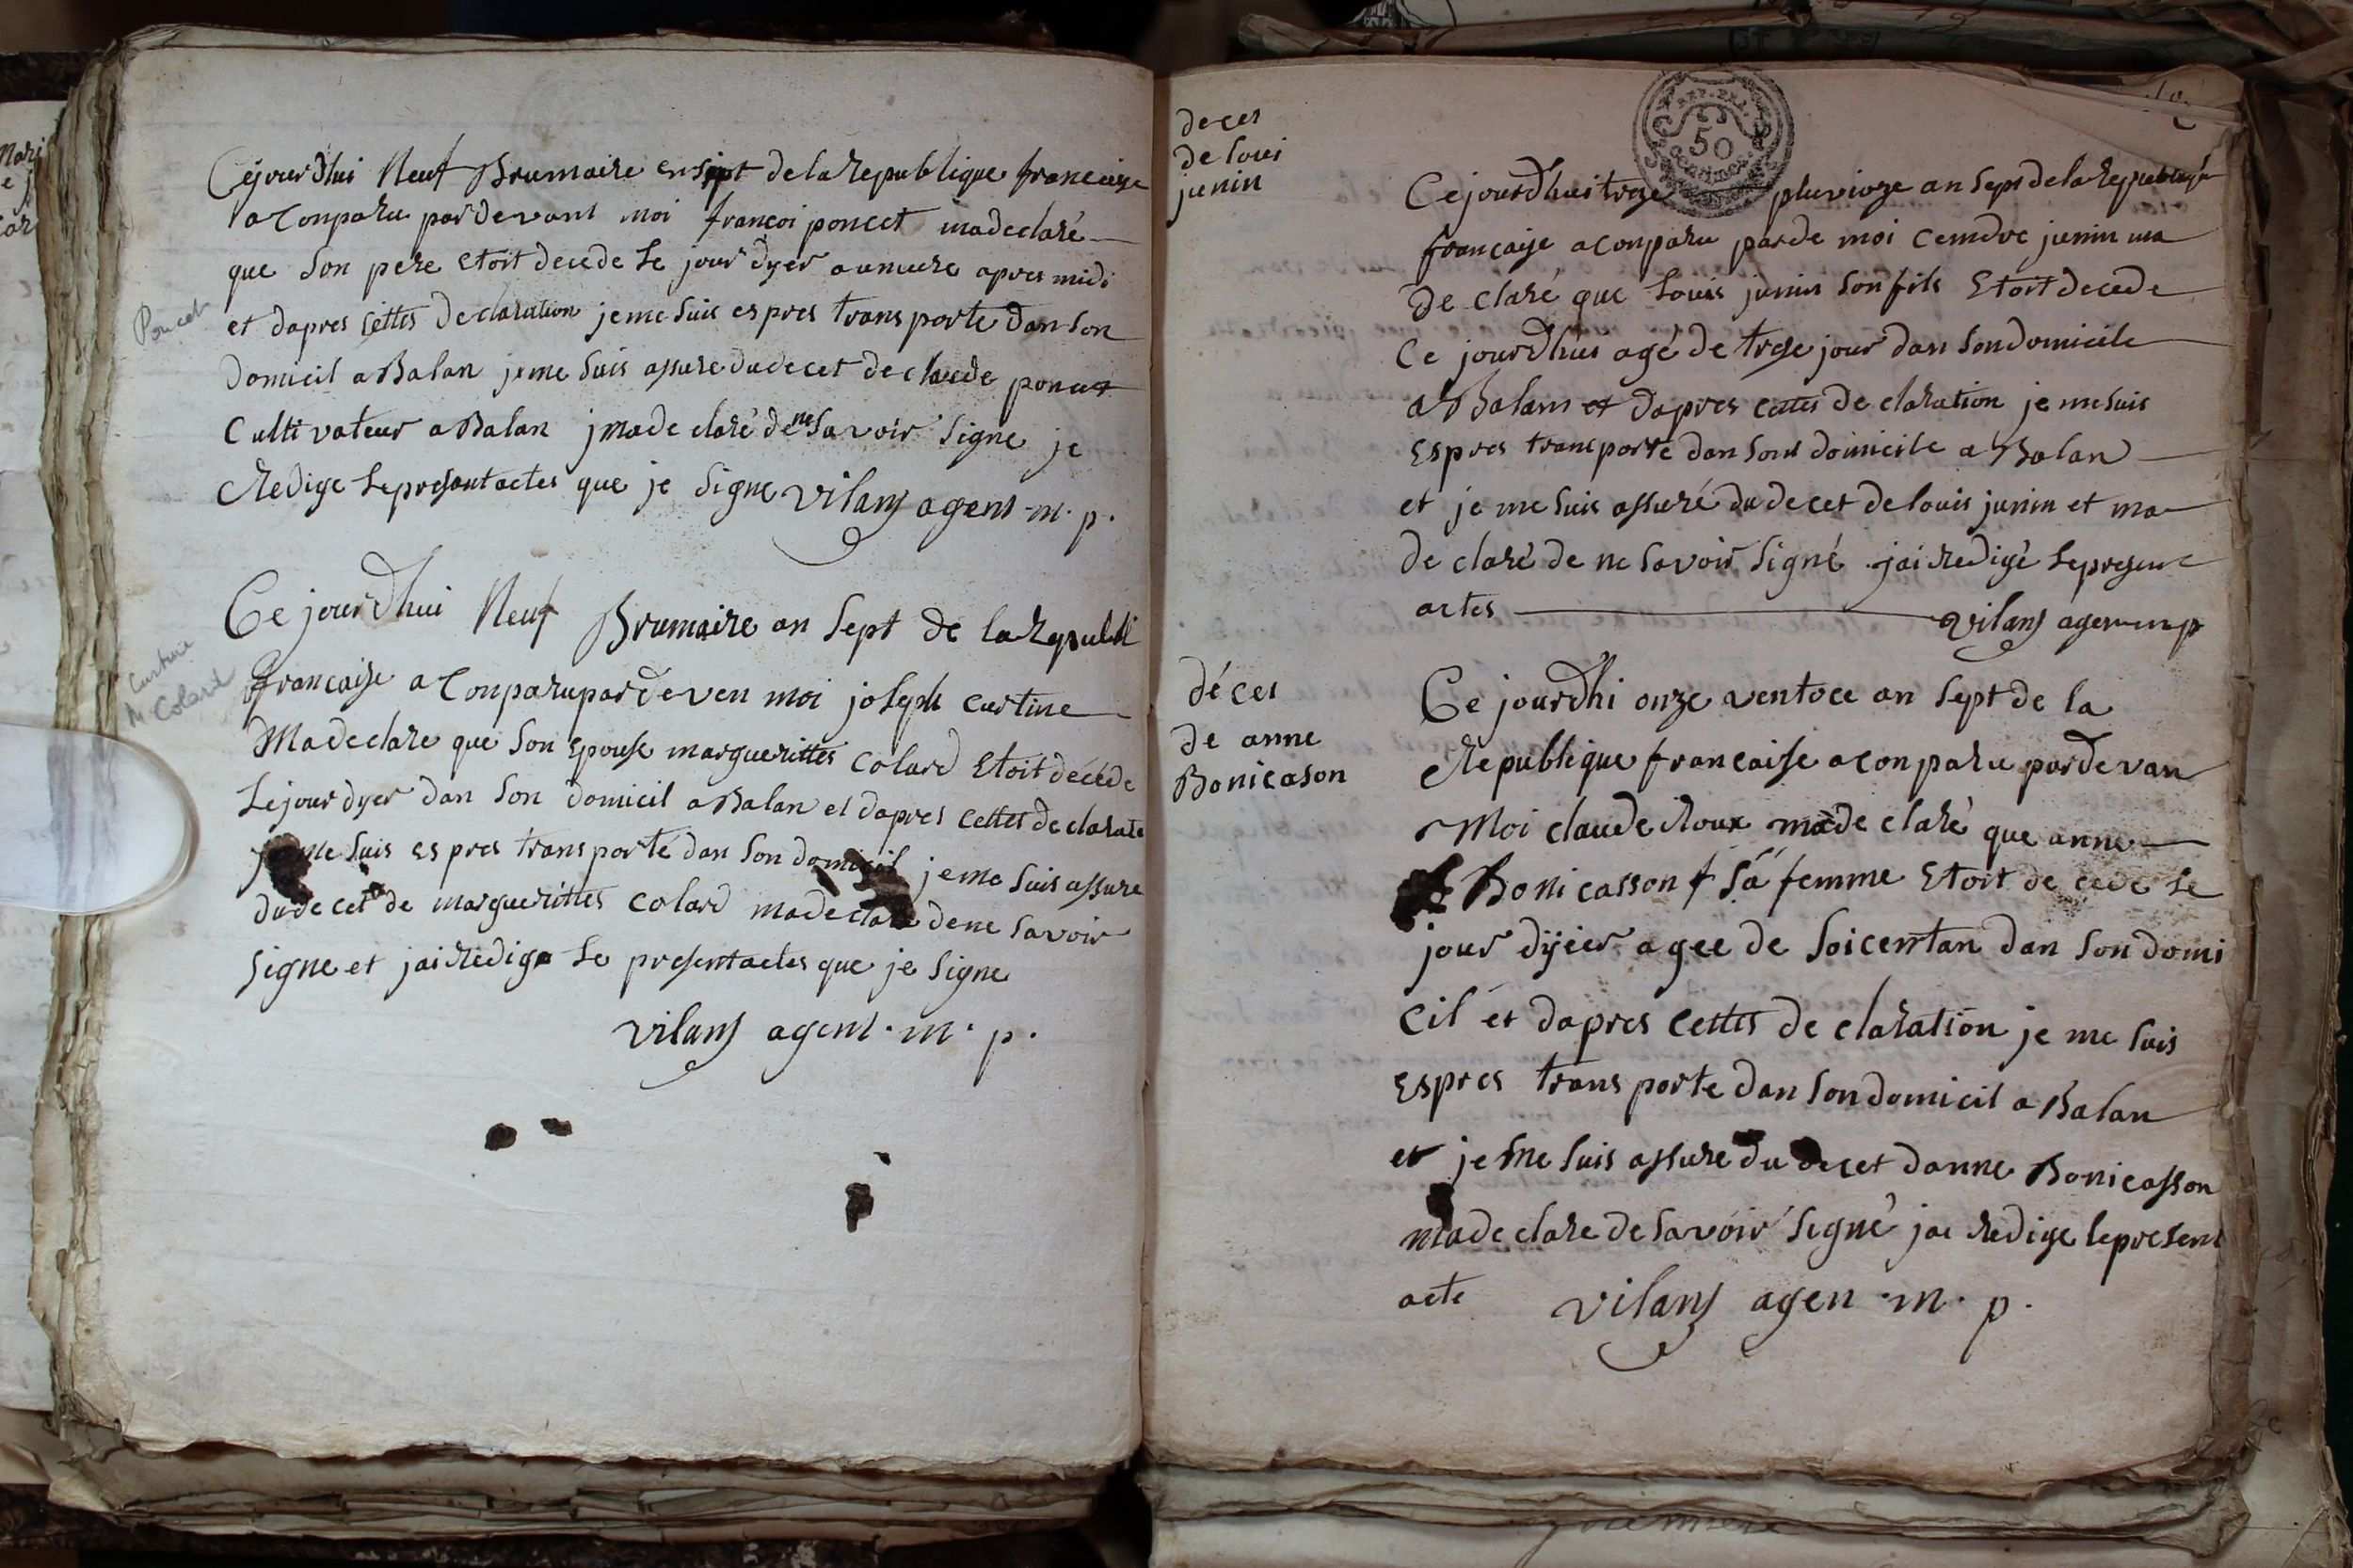 Poncet
Cejourdhui Neuf Brumaire en sept de la republique francaise
a Conparu pardevant moi françoi poncet madeclaré
que Son pere etoit decede Le jour dyer a apres midi
et dapres Cettes declaration je me Suis espres transporte dan Son
Domicil a Balan je me Suis assure du decet de claude poncet
Cultivateur a Balan madeclaré de ne Savoir Signe je
Redige Le present actes que je Signe Vilans agent m. p.
Curtine
M Colard
Ce jourdhui Neuf Brumaire an Sept de la republi
francaise a Conparu pardeven moi joseph Curtine
Madeclare que Son Epouse marguerittes Colard Etoit décéde
Le jour dyer dan Son domicil a Balan et dapres Cettes declarate
je me Suis espres transporté dan Son domicil je me Suis assure
du decet de marguerittes Colard madeclare dene Savoir
Signe et jai Redige Le present actes que je Signe
Vilans agent. m. p.
deces
de loui
junin
REP. FRA.
50
CENTIMES
Cejourdhui treze pluvioze an Sept de la republique
francaise a conparu parde moi junin ma
de claré que Louis junin Son fils Etoit decede
Ce jourdhui agé de treze jour dan Son domicile
a Balam et dapres cettes de claration je me Suis
Espres transporte dan Sont domicile a Balan
et je me Suis assuré du decet de louis junin et ma
de claré de ne Savoir Signé jai Redigé Le present
actes Vilans agen m p
déces
de anne
Bonicason
Ce jourdhi onze ventoce an Sept de la
Republique francaise a conparu pardevan
Moi claude Roux made claré que anne
Bonicasson f Sa femme Etoit de cede Le
jour dyier agee de Soicentan dan Son domi
cil et dapres Cettes de claration je me Suis
Espres transporte dan Son domicil a Balan
et je me Suis assure du decet danne Bonicasson
made clare de Savoir Signé jai Redige le present
acte Vilans agen. m. p.